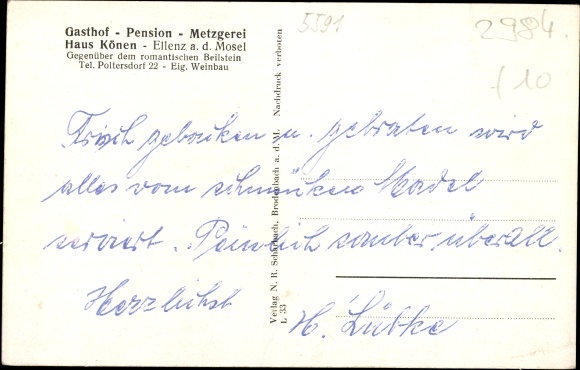 Gasthof - Pension - Metzgerei
Haus Könen - Ellenz a. d. Mosel
Gegenüber dem romantischen Beilstein
Tel. Poltersdorf 22 - Eig. Weinbau
5591
2984.
(10
Frisch gebacken u. gebraten wird
alles vom schmucken Madel
serviert. Peinlich sauber überall.
Herzlichst
H. Lübke
Verlag N. R. Scharbach, Brodenbach a. d. M. Nachdruck verboten
L 33